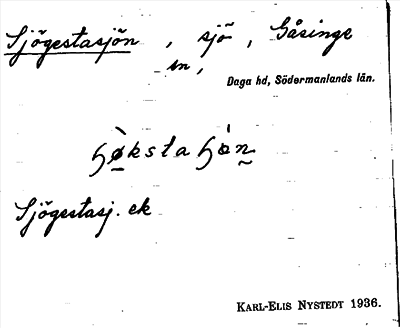 Sjögestasjön, sjö, Gåsinge
sn,
Daga hd, Södermanlands län.
Sjögestasj. ek
KARL-ELIS NYSTEDT 1936.